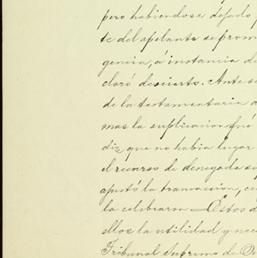 pero habiendose dejado p
te del apelante se prom
gencia, á instancia de
claró desierto. Ante s
de la testamentaria a
mas la suplicacion fué
diz que no habia lugar
el recurso de denegada su
ajustó la transaccion, co
la celebraron Estos d
ellos la utilidad y nec
Tribunal Supremo de